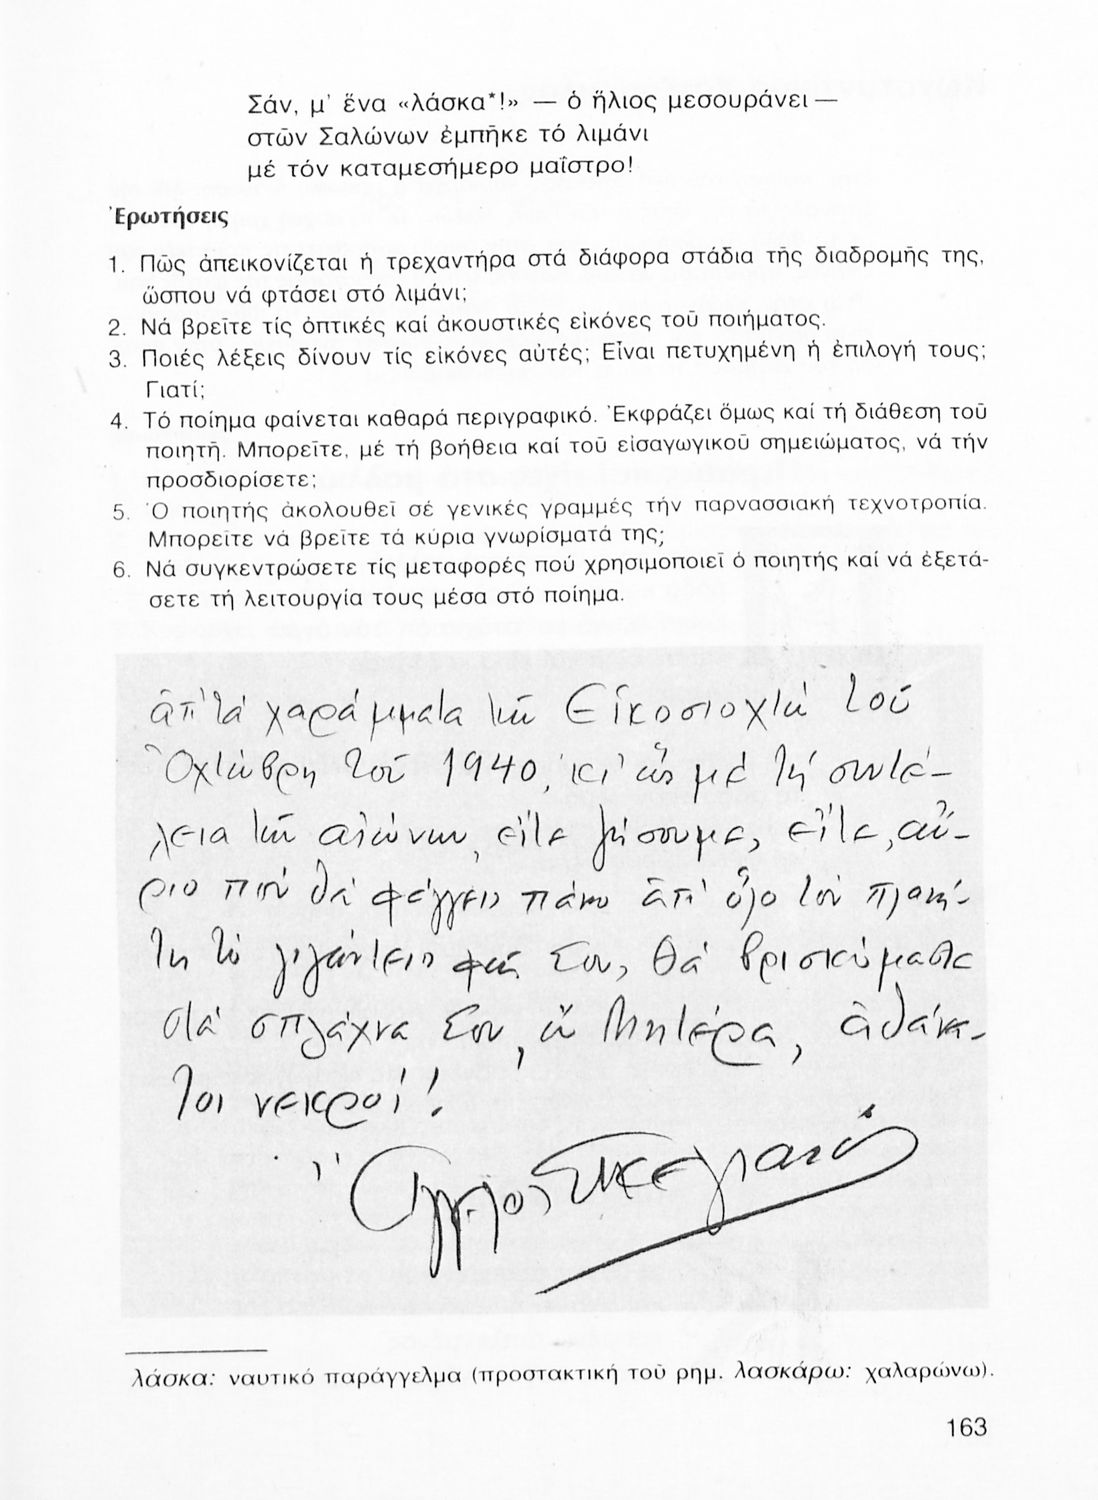 Σάν, μ' ἕνα «λάσκα*!» — ὁ ἥλιος μεσουράνει —
στῶν Σαλώνων ἐμπῆκε τό λιμάνι
μέ τόν καταμεσήμερο μαΐστρο!
Ἐρωτήσεις
1. Πῶς ἀπεικονίζεται ἡ τρεχαντήρα στά διάφορα στάδια τῆς διαδρομῆς της,
ὥσπου νά φτάσει στό λιμάνι;
2. Νά βρεῖτε τίς ὀπτικές καί ἀκουστικές εἰκόνες τοῦ ποιήματος.
3. Ποιές λέξεις δίνουν τίς εἰκόνες αὐτές; Εἶναι πετυχημένη ἡ ἐπιλογή τους;
Γιατί;
4. Τό ποίημα φαίνεται καθαρά περιγραφικό. Ἐκφράζει ὅμως καί τή διάθεση τοῦ
ποιητῆ. Μπορεῖτε, μέ τή βοήθεια καί τοῦ εἰσαγωγικοῦ σημειώματος, νά τήν
προσδιορίσετε;
5. Ὁ ποιητής ἀκολουθεῖ σέ γενικές γραμμές τήν παρνασσιακή τεχνοτροπία.
Μπορεῖτε νά βρεῖτε τά κύρια γνωρίσματά της;
6. Νά συγκεντρώσετε τίς μεταφορές πού χρησιμοποιεῖ ὁ ποιητής καί νά ἐξετά-
σετε τή λειτουργία τους μέσα στό ποίημα.
ἀπ' τά χαράμματα τῆς Εἰκοσιοχτώ τοῦ
Ὀχτώβρη τοῦ 1940, κι' ὡς μέ τή συντέ-
λεια τῶν αἰώνων, εἴτε ζήσουμε, εἴτε, αὔ-
ριο πού θά φέγγει πάνω ἀπ' ὅλο τόν πλανή-
τη τό γιγάντειο φῶς Σου, θά βρισκόμαστε
στά σπλάχνα Σου, ὦ Μητέρα, ἀθάνα-
τοι νεκροί!
Ἄγγελος Σικελιανός
λάσκα: ναυτικό παράγγελμα (προστακτική τοῦ ρημ. λασκάρω: χαλαρώνω).
163